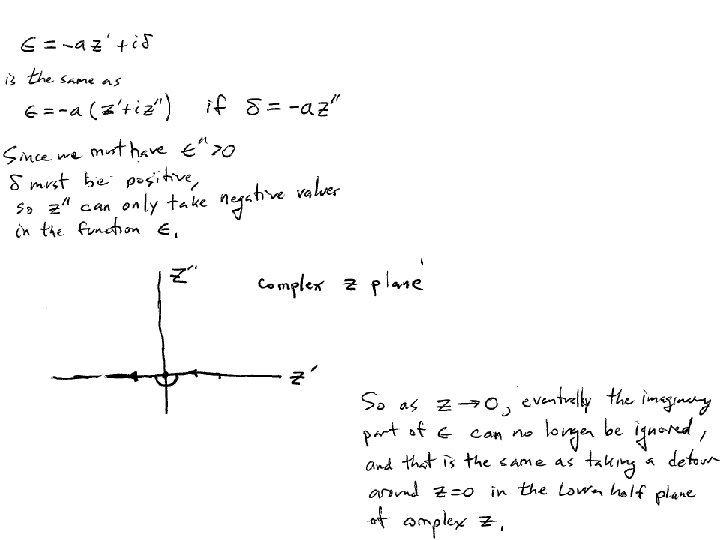 ϵ = -az' + iδ
is the same as
ϵ = -a (z' + iz") if δ = -az"
Since we must have ϵ" > 0
δ must be positive,
so z" can only take negative values
in the function ϵ.
z"
complex z plane
z'
So as z → 0, eventually the imaginary
part of ϵ can no longer be ignored,
and that is the same as taking a detour
around z=0 in the lower half plane
of complex z.